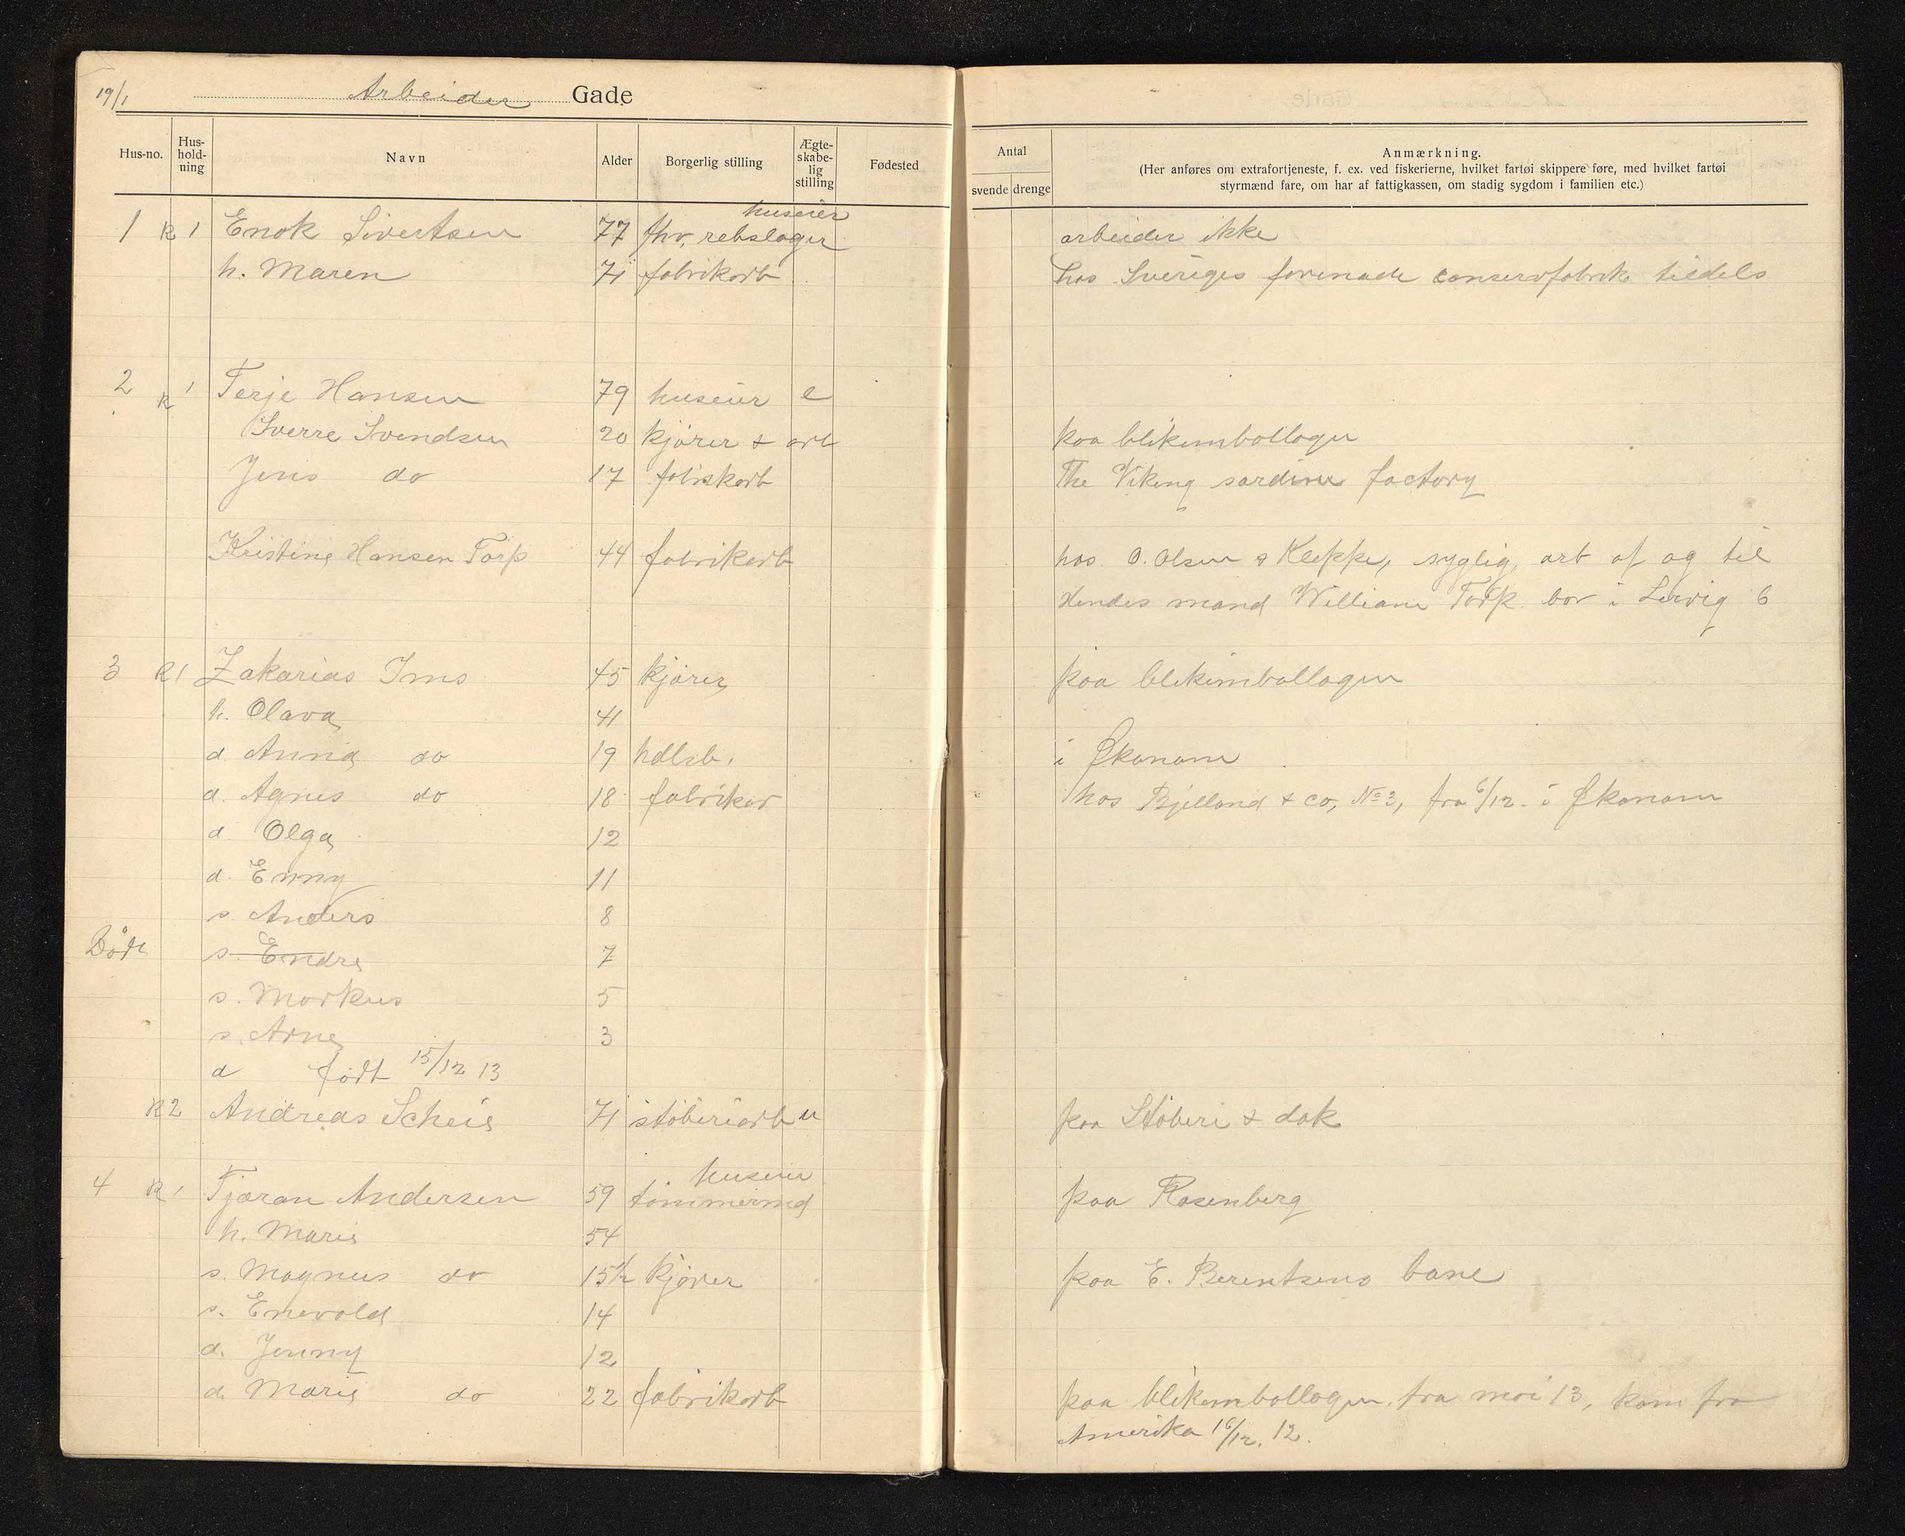 19/1 Arbeider Gade
Hus-no. Hus-hold-ning Navn Alder Borgerlig stilling Ægte-skabe-lig stilling Fødested Antal svende drenge Anmærkning.
(Her anføres om extrafortjeneste, f. ex. ved fiskerierne, hvilket fartøi skippere føre, med hvilket fartøi
styrmænd fare, om har af fattigkassen, om stadig sygdom i familien etc.)
huseier
1 R 1 Enok Sivertsen 77 fhv. rebslager arbeider ikke
h. Maren 71 fabrikarb hos Sveriges forenade conservfabrik tildels
2 R 1 Terje Hansen 79 huseier e
Sverre Svendsen 20 kjører & arb paa blikemballagen
Jens do 17 fabrikarb The Viking sardine factory
Kristine Hansen Torp 44 fabrikarb hos O. Olsen & Kleppe, syglig, arb af og til
Hendes mand William Torp bor i Lervig 6
3 R 1 Zakarias Ims 45 kjører paa blikemballagen
h. Olava 41
d. Anna do 19 hdlsb. i Økonom
d. Agnes do 18 fabrikar hos Bjelland & co, No 3, fra 6/12. i Økonom
d Olga 12
d. Enny 11
s. Anders 8
Død s. Endre 7
s. Markus 5
s. Arne 3
d født 15/12 13
R 2 Andreas Scheie 71 støberiarb u paa Støberi & dok
huseier
4 R 1 Tjæran Andersen 59 tømmermd paa Rosenberg
h. Marie 54
s. Magnus do 15½ kjører paa E. Berentsens bane
s. Enevold 14
d. Jenny 12
d. Marie do 22 fabrikarb paa blikemballagen, fra mai 13, kom fra
Amerika 16/12. 12.